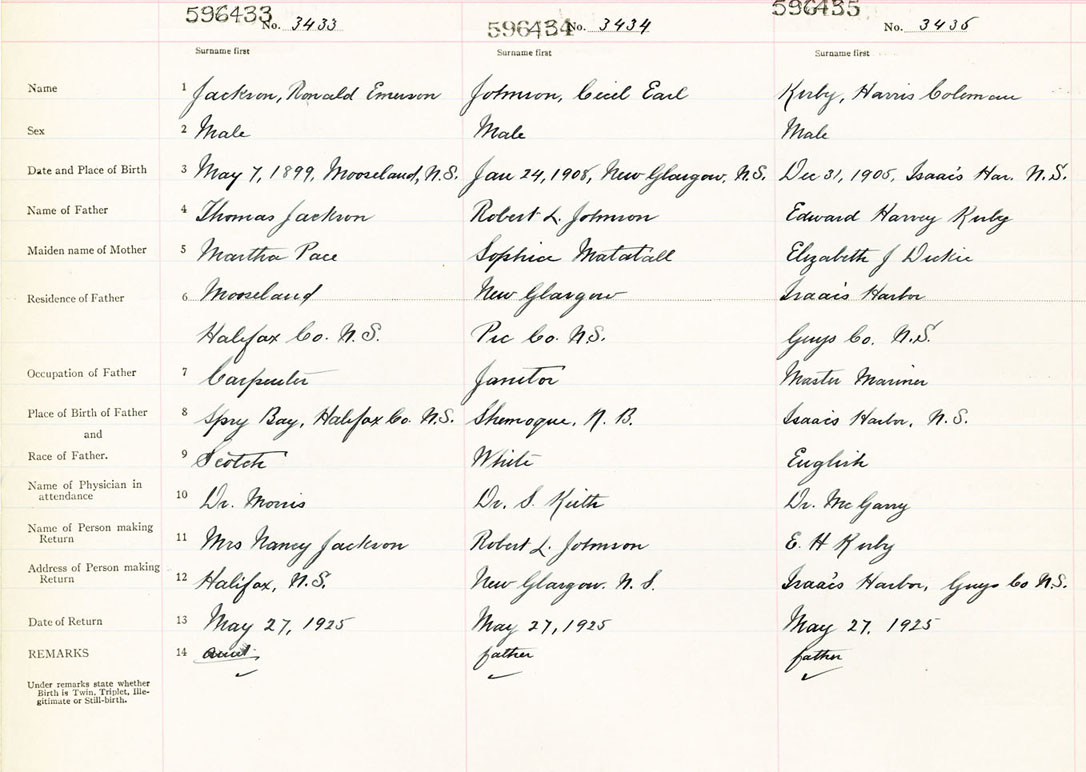 596433 No. 3433 596434 No. 3434 596435 No. 3435
Surname first Surname first Surname first
Name 1 Jackson, Ronald Emerson Johnson, Cecil Earl Kirby, Harris Coleman
Sex 2 Male Male Male
Date and Place of Birth 3 May 7, 1899, Mooseland, N.S. Jan 24, 1908, New Glasgow, N.S. Dec 31, 1905, Isaac's Har. N.S.
Name of Father 4 Thomas Jackson Robert L. Johnson Edward Harvey Kirby
Maiden name of Mother 5 Martha Pace Sophia Matatall Elizabeth J Dickie
Residence of Father 6 Mooseland New Glasgow Isaac's Harbor
Halifax Co. N.S. Pic Co. N.S. Guys Co. N.S.
Occupation of Father 7 Carpenter Janitor Master Mariner
Place of Birth of Father 8 Spry Bay, Halifax Co. N.S. Shemogue, N.B. Isaac's Harbor, N.S.
and
Race of Father. 9 Scotch White English
Name of Physician in
attendance 10 Dr. Morris Dr. S. Keith Dr. McGarry
Name of Person making
Return 11 Mrs Nancy Jackson Robert L. Johnson E. H Kirby
Address of Person making
Return 12 Halifax, N.S. New Glasgow. N.S. Isaac's Harbor, Guys Co N.S.
Date of Return 13 May 27, 1925 May 27, 1925 May 27, 1925
REMARKS 14 aunt. father father
Under remarks state whether
Birth is Twin, Triplet, Ille-
gitimate or Still-birth.